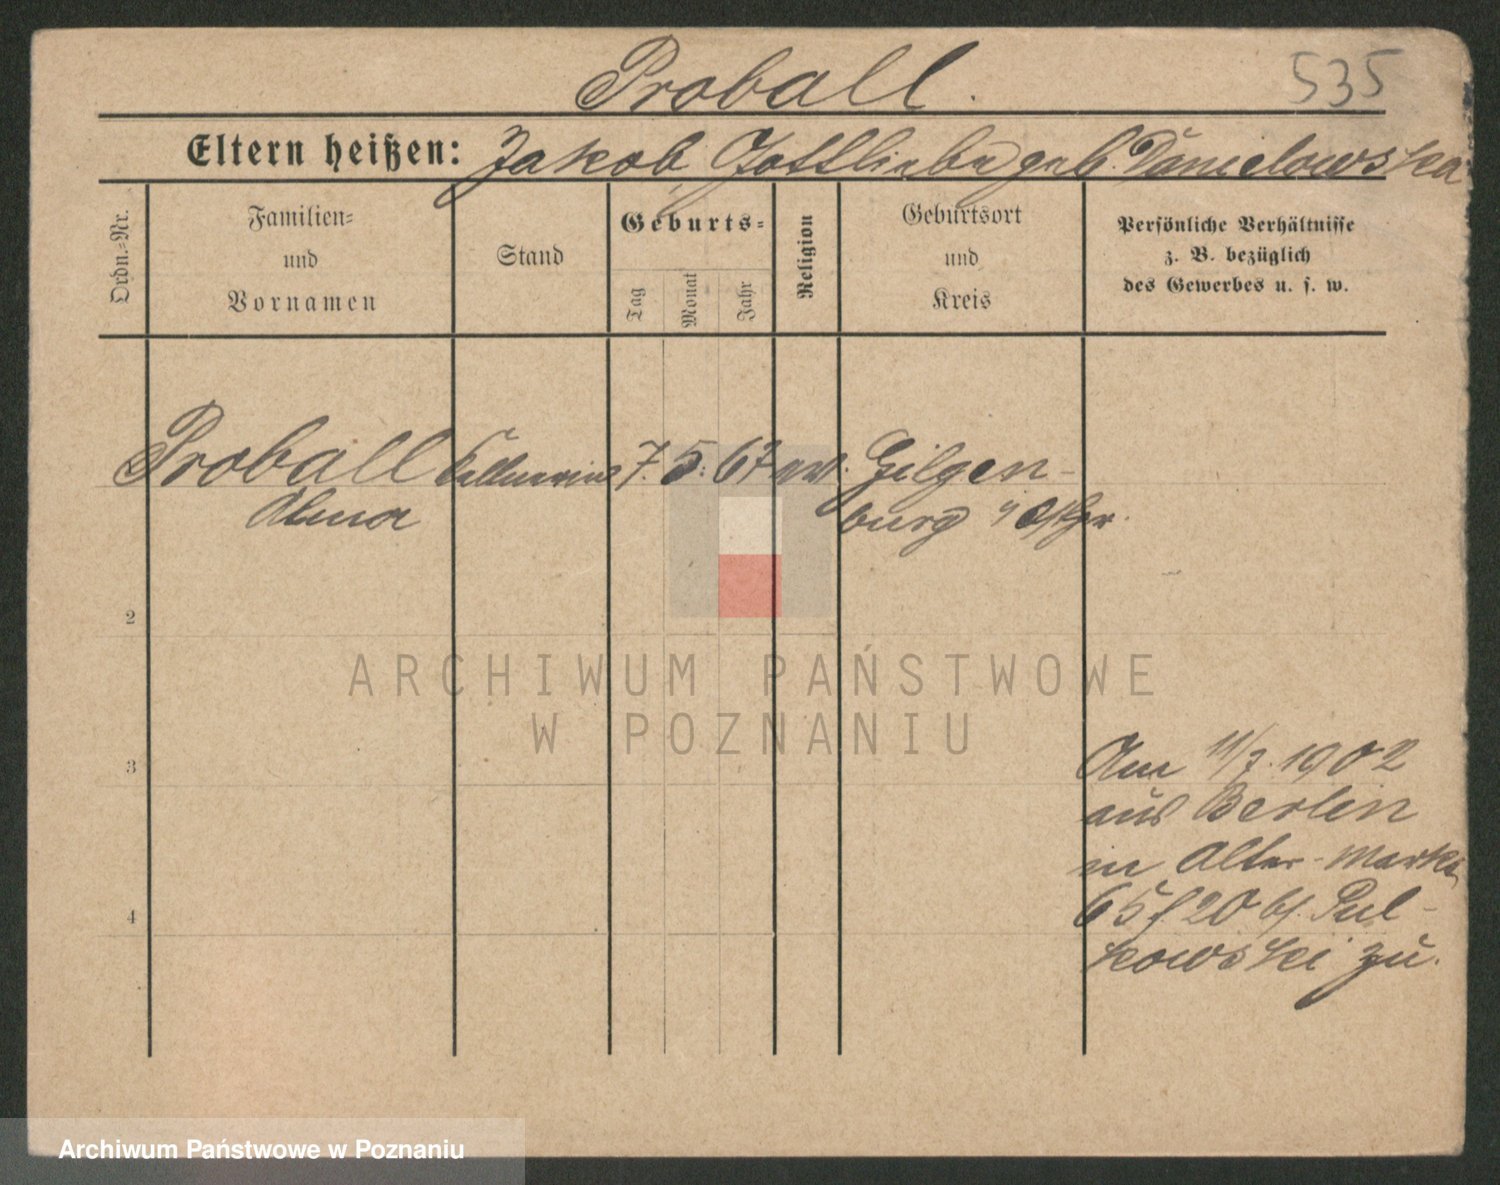 Proball.
535
Eltern heißen: Jakob Gottliebe geb. Danielowska
Ordn.-Nr.
Familien-
und
Vornamen
Stand
Geburts-
Tag
Monat
Jahr
Religion
Geburtsort
und
Kreis
Persönliche Verhältnisse
z. B. bezüglich
des Gewerbes u. s. w.
Proball Kellnerin 7. 5. 67 ev. Gilgen-
Alma burg Ostpr.
2
3
4
Am 11/7. 1902
aus Berlin
in Alter-Markt
65 f 20 bf. Pul-
kowski zu.
ARCHIWUM PAŃSTWOWE
W POZNANIU
Archiwum Państwowe w Poznaniu